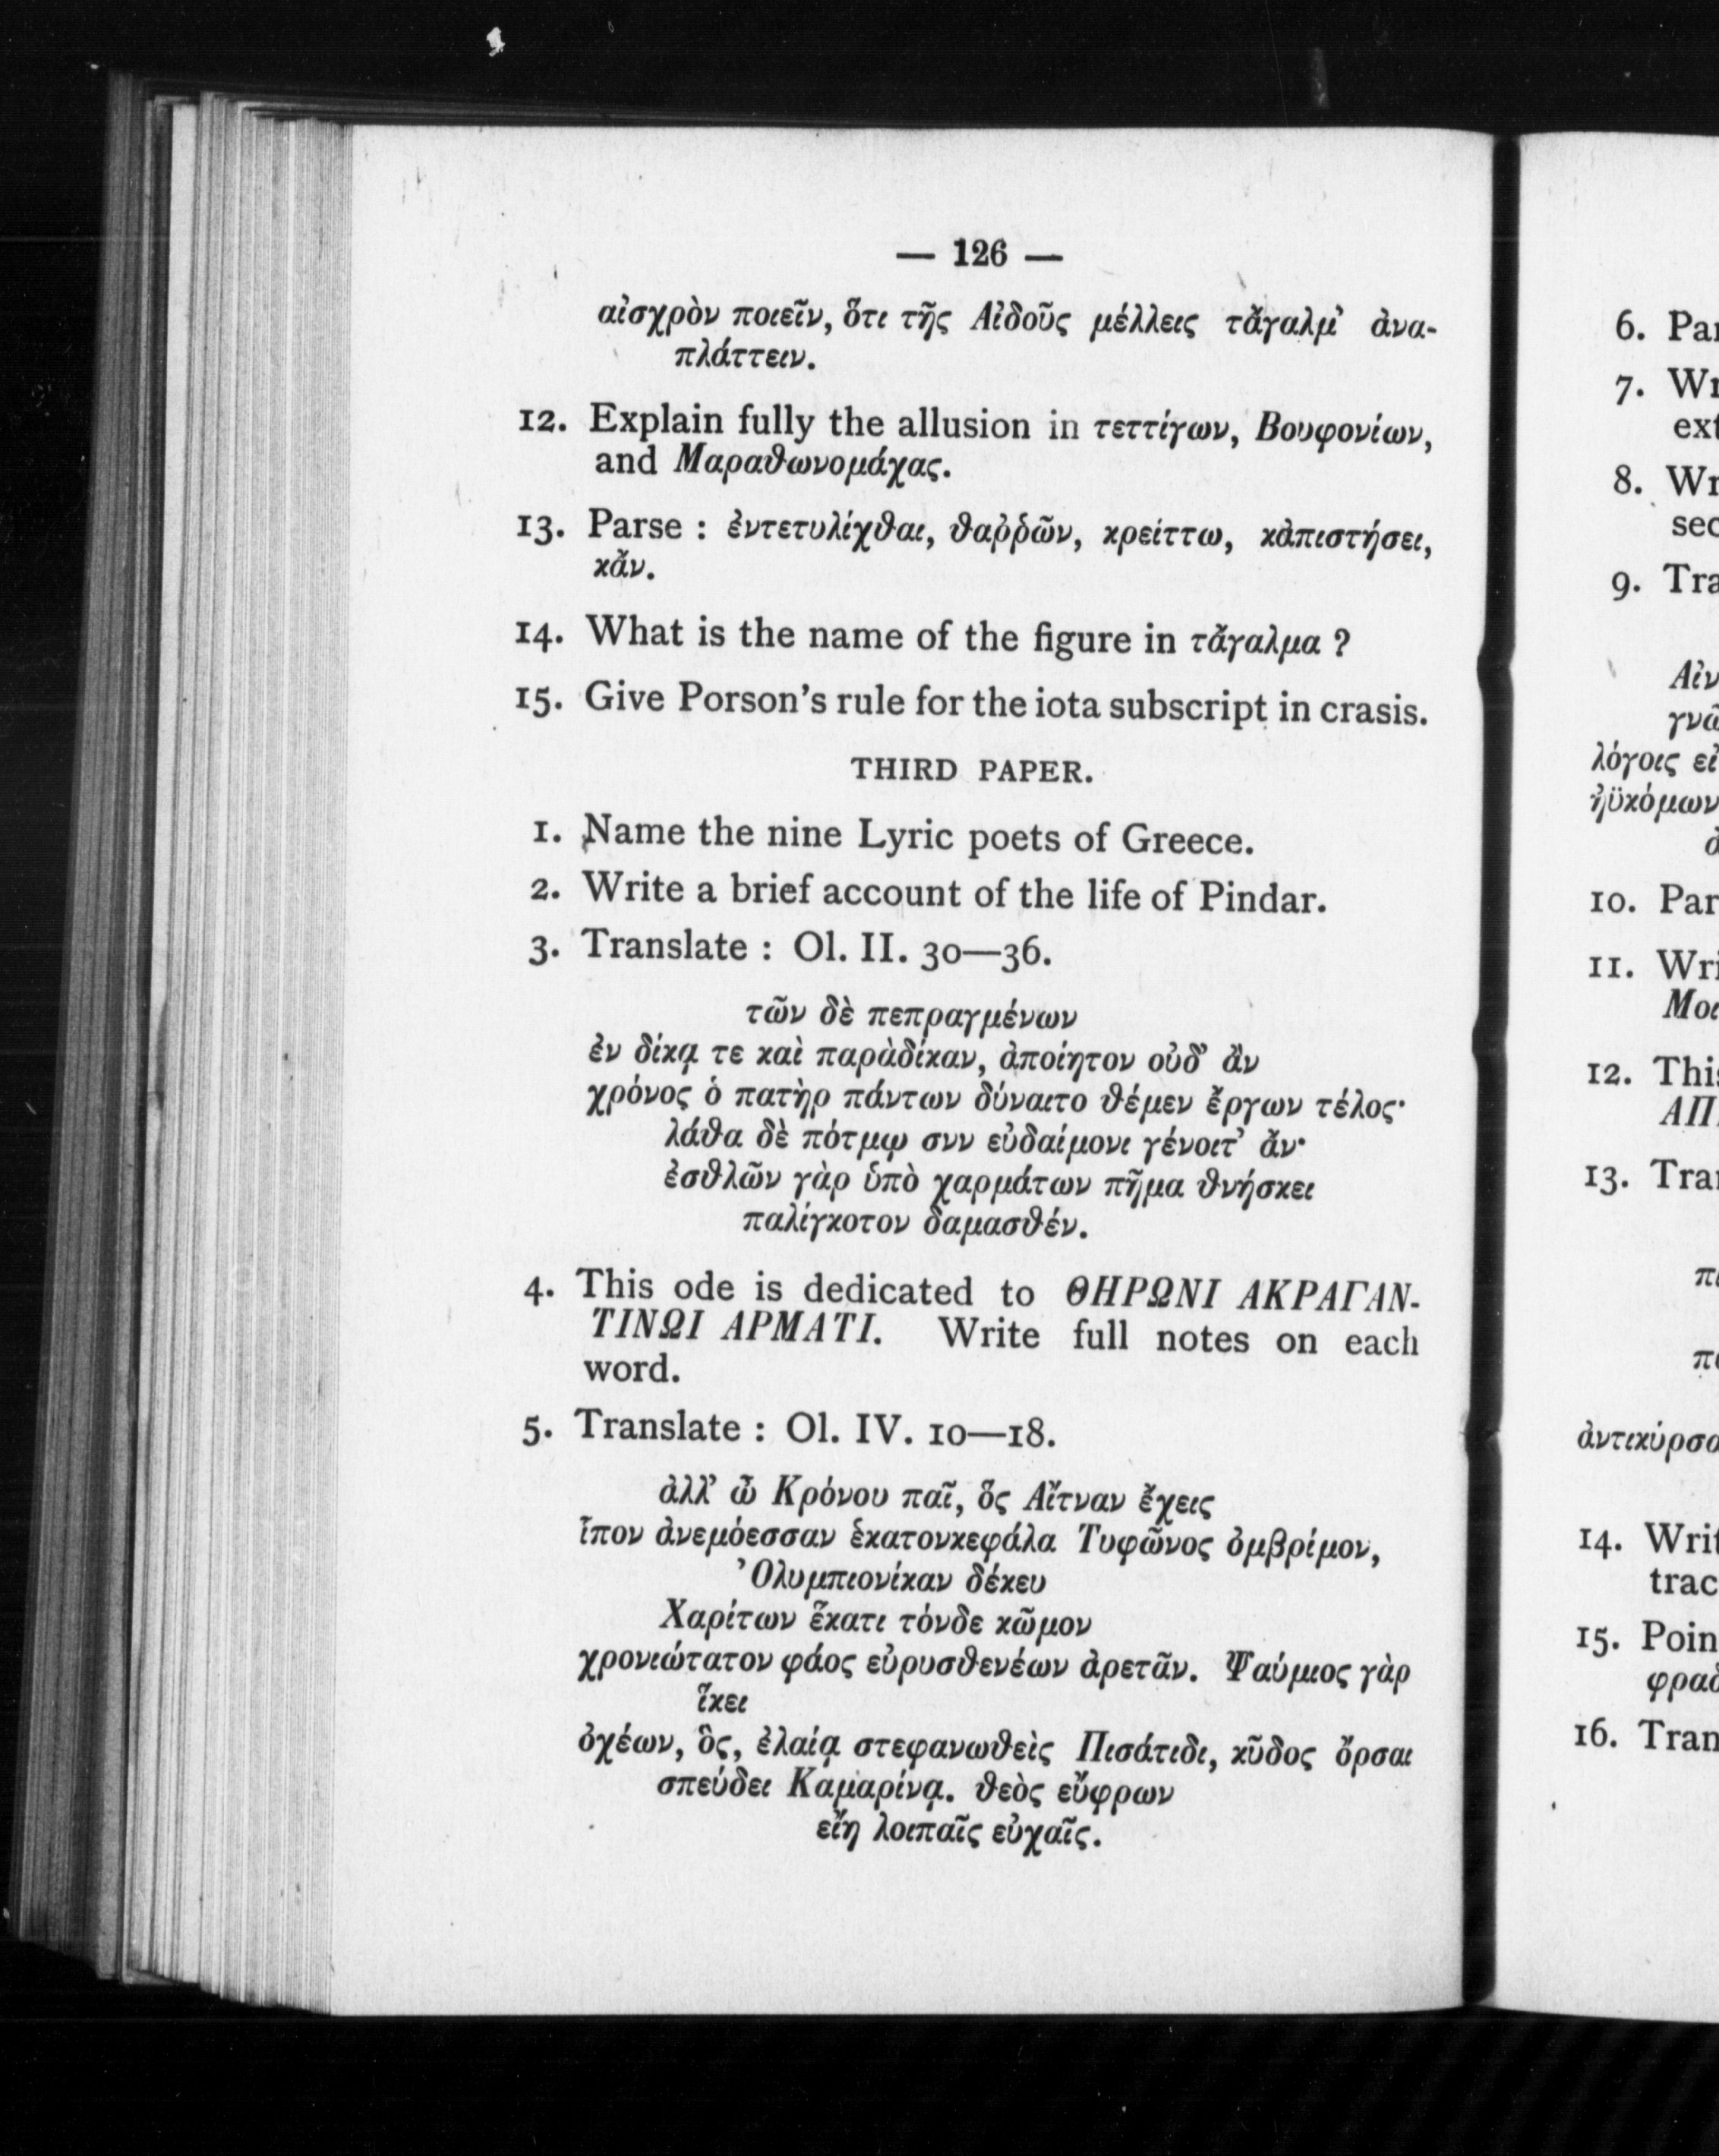 — 126 —
αἰσχρὸν ποιεῖν, ὅτι τῆς Αἰδοῦς μέλλεις τἄγαλμ᾽ ἀνα-
πλάττειν.
12. Explain fully the allusion in τεττίγων, Βουφονίων,
and Μαραθωνομάχας.
13. Parse : ἐντετυλίχθαι, θαῤῥῶν, κρείττω, κἀπιστήσει,
κἄν.
14. What is the name of the figure in τἄγαλμα ?
15. Give Porson's rule for the iota subscript in crasis.
THIRD PAPER.
1. Name the nine Lyric poets of Greece.
2. Write a brief account of the life of Pindar.
3. Translate : Ol. II. 30—36.
τῶν δὲ πεπραγμένων
ἐν δίκᾳ τε καὶ παρὰδίκαν, ἀποίητον οὐδ᾽ ἂν
χρόνος ὁ πατὴρ πάντων δύναιτο θέμεν ἔργων τέλος·
λάθα δὲ πότμῳ σνν εὐδαίμονι γένοιτ᾽ ἄν·
ἐσθλῶν γὰρ ὑπὸ χαρμάτων πῆμα θνήσκει
παλίγκοτον δαμασθέν.
4. This ode is dedicated to ΘΗΡΩΝΙ ΑΚΡΑΓΑΝ-
ΤΙΝΩΙ ΑΡΜΑΤΙ. Write full notes on each
word.
5. Translate : Ol. IV. 10—18.
ἀλλ᾽ ὦ Κρόνου παῖ, ὃς Αἴτναν ἔχεις
ἶπον ἀνεμόεσσαν ἑκατονκεφάλα Τυφῶνος ὀμβρίμον,
Ὀλυμπιονίκαν δέκευ
Χαρίτων ἕκατι τόνδε κῶμον
χρονιώτατον φάος εὐρυσθενέων ἀρετᾶν. Ψαύμιος γὰρ
ἵκει
ὀχέων, ὃς, ἐλαίᾳ στεφανωθεὶς Πισάτιδι, κῦδος ὄρσαι
σπεύδει Καμαρίνᾳ. θεὸς εὔφρων
εἴη λοιπαῖς εὐχαῖς.
6.
7.
8.
9.
λόγοις
10.
11.
12.
13.
14.
15.
16.